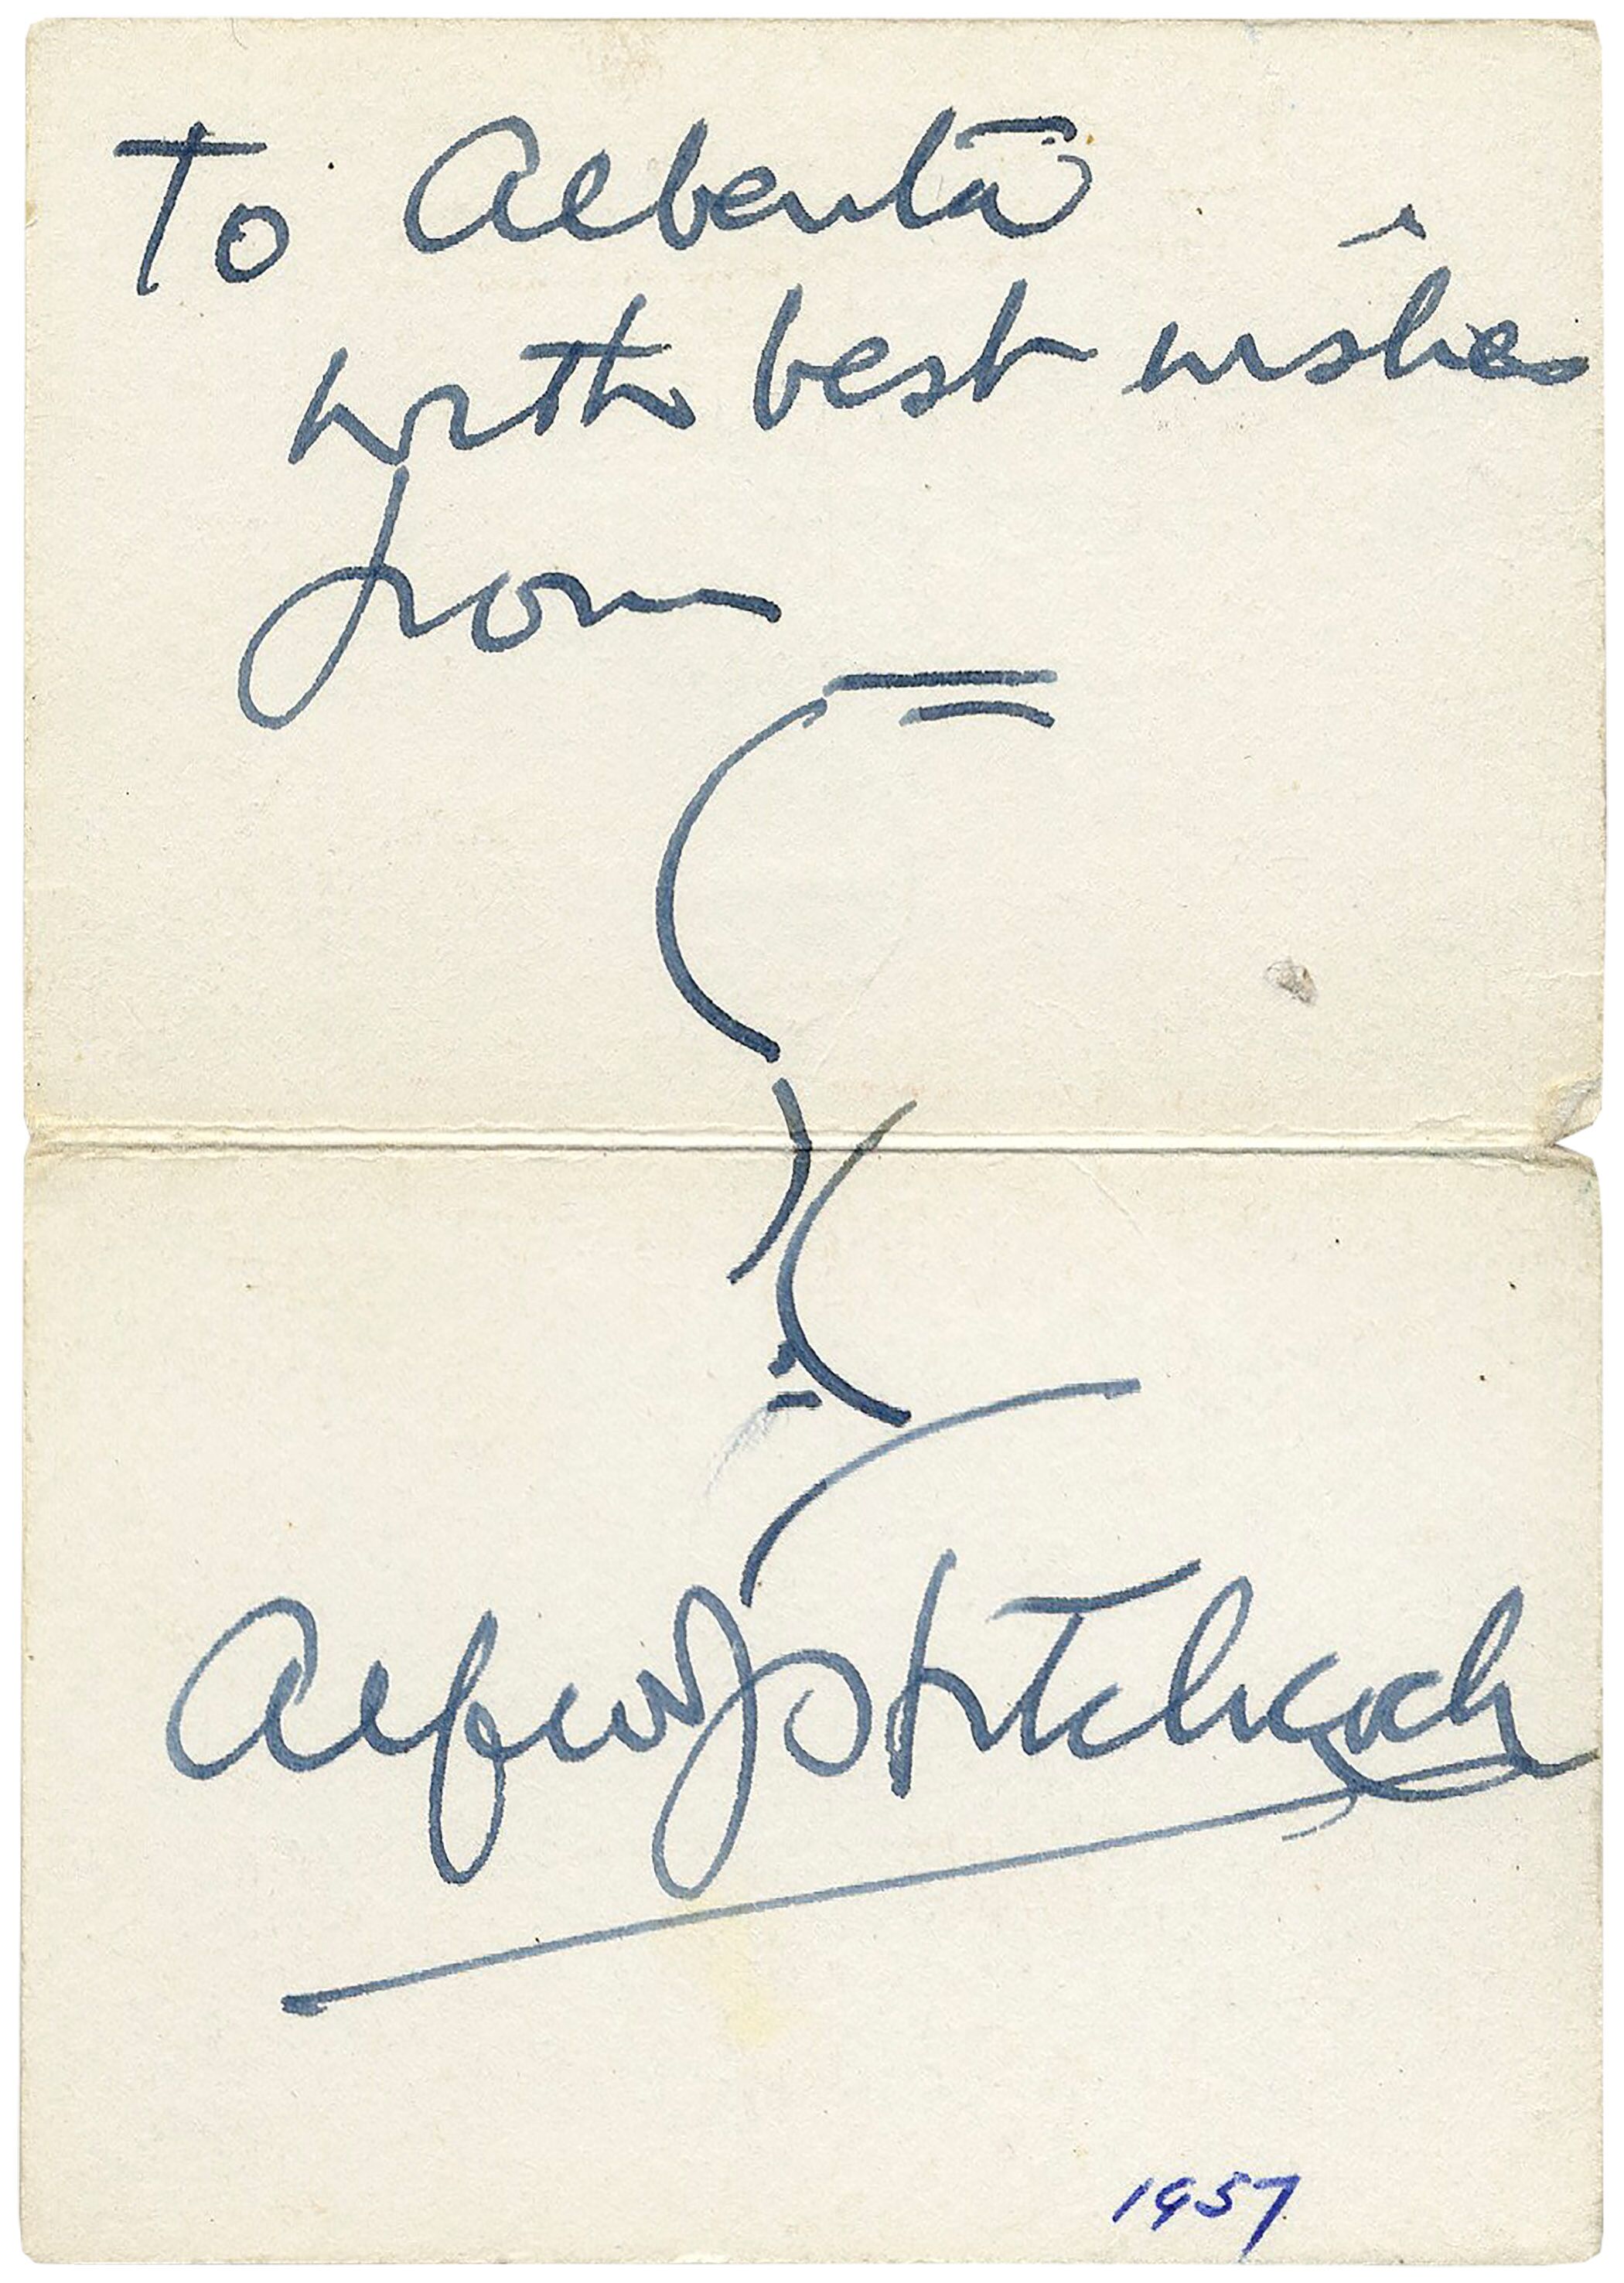 To Alberta
with best wishes
from
Alfred J Hitchcock
1957